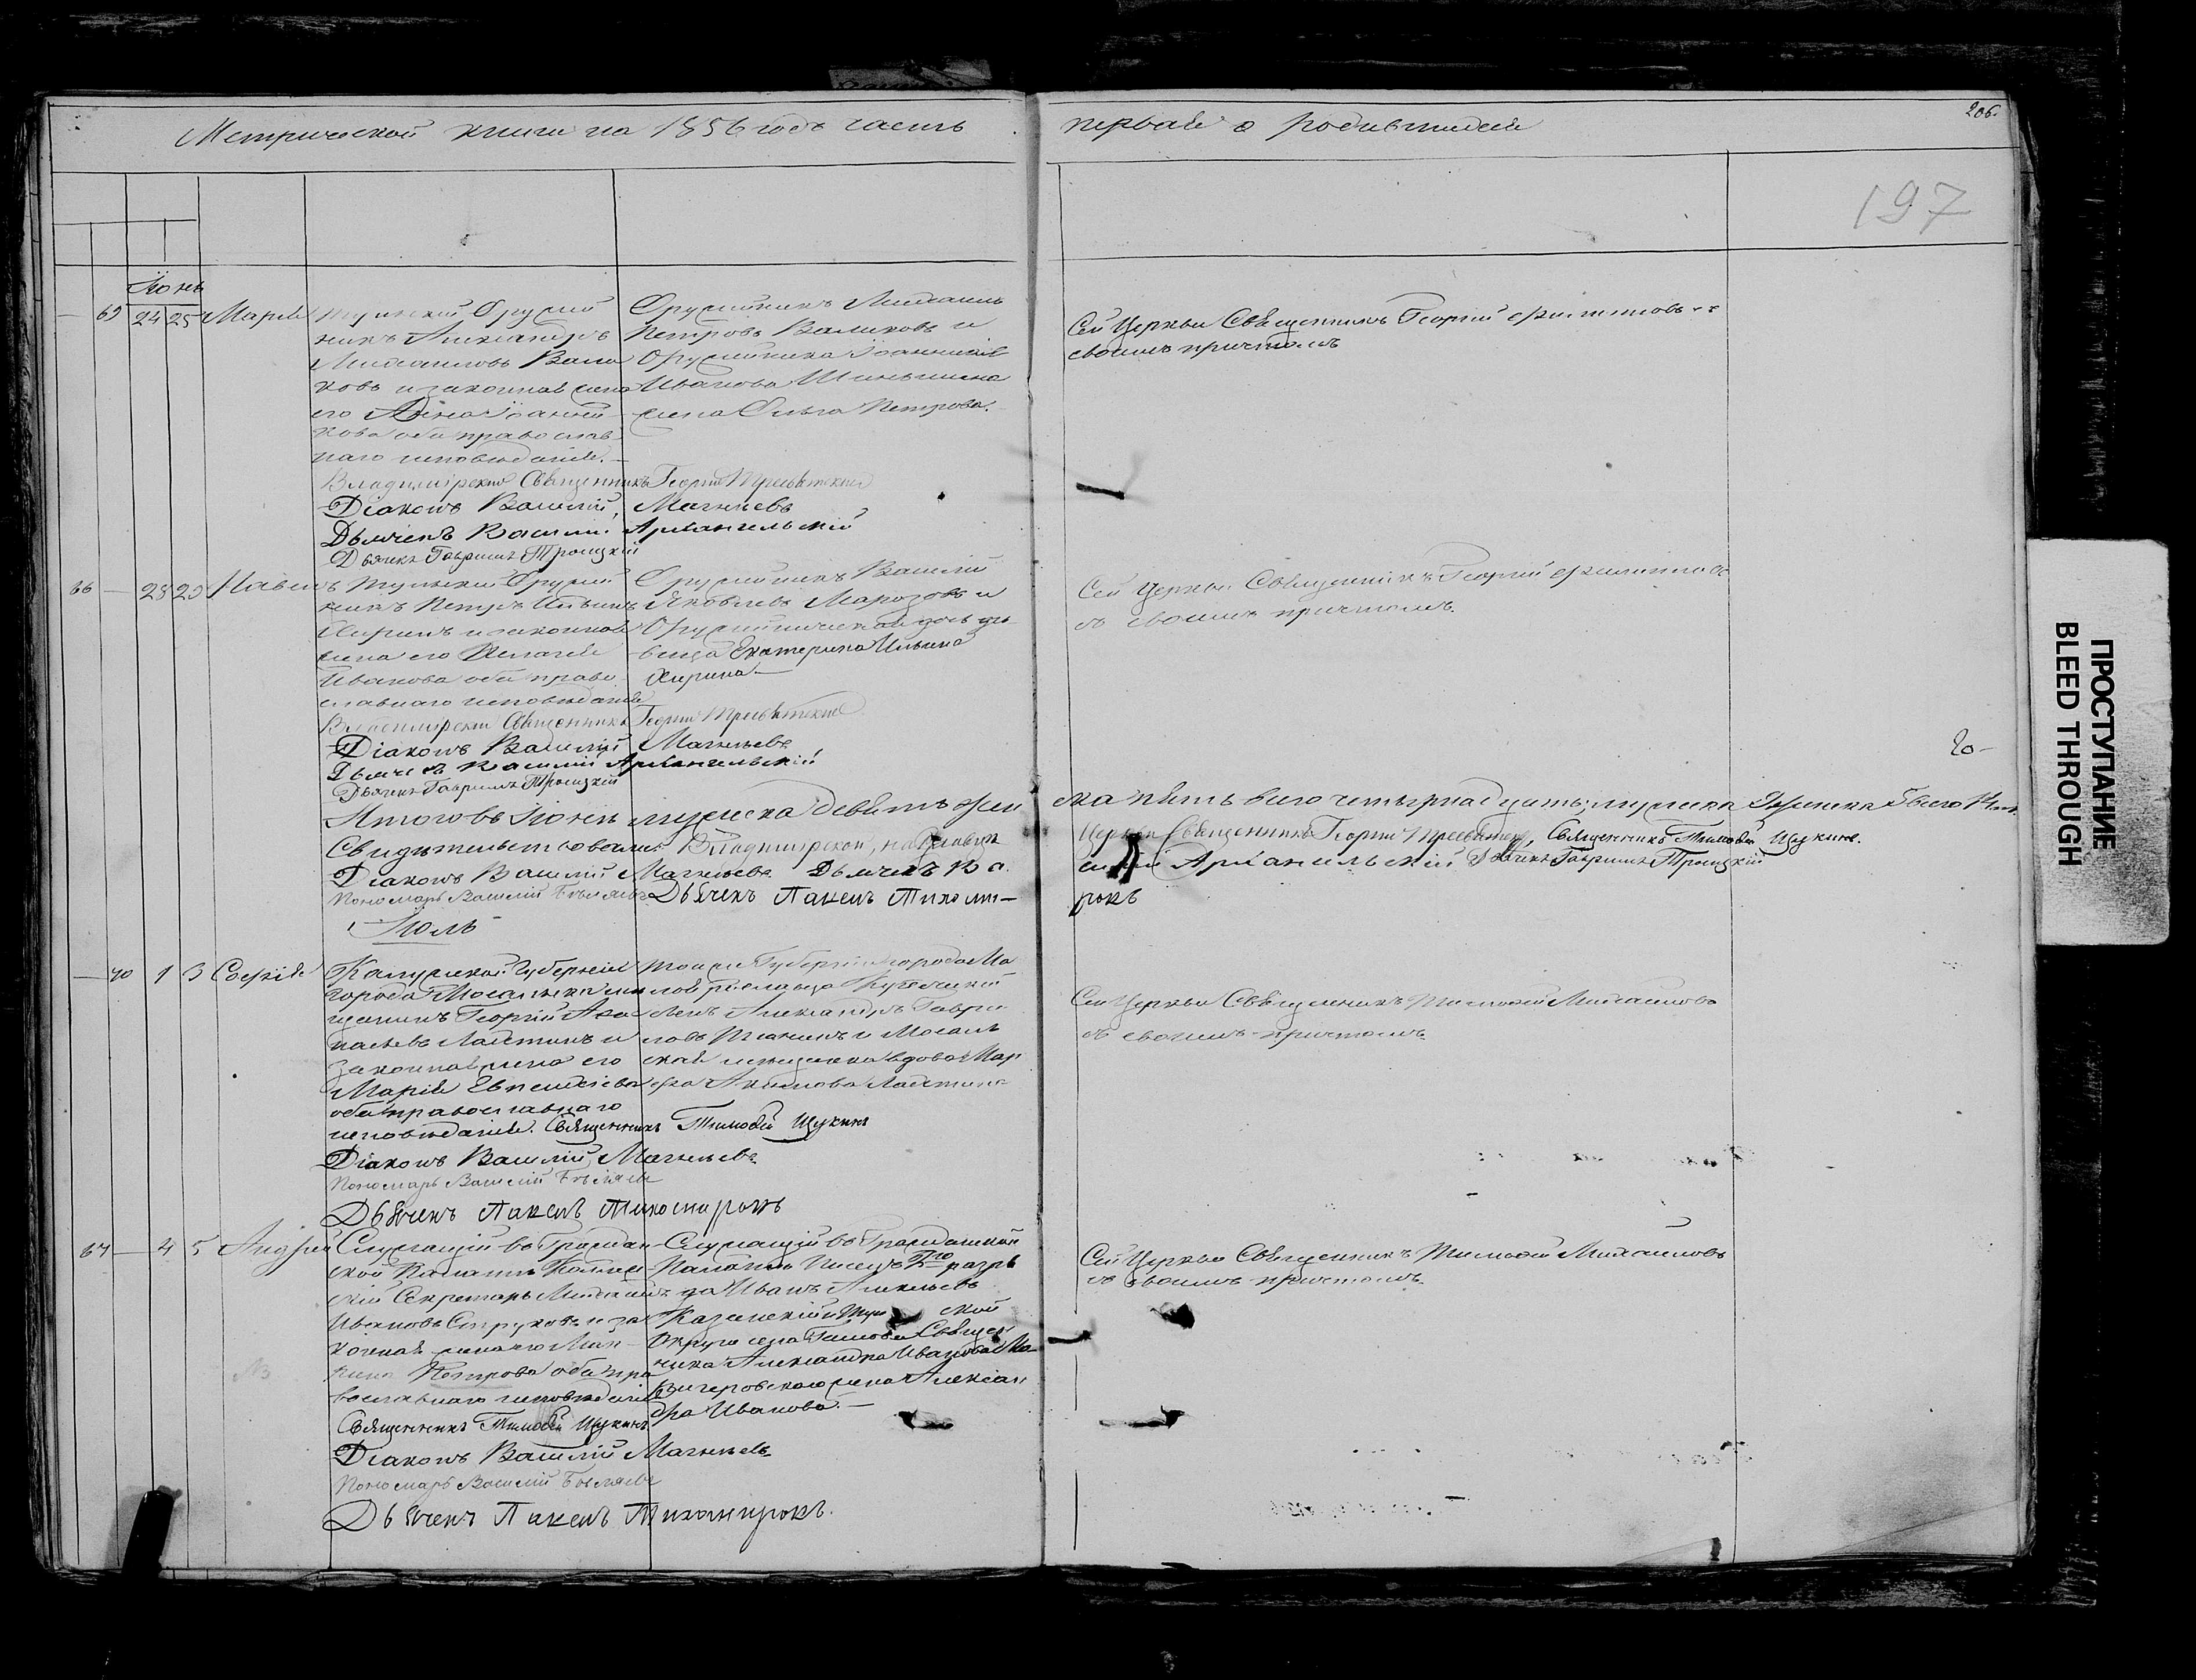 Метрической книги на 1856 годъ часть первая о родившихся
206.
197
Іюнь
69 24 25 Марія
Тульский Оружей
никъ Александръ
Михаиловъ Вали
ковъ и законная жена
его Анна Іоанни
кова оба православ
наго исповѣданія.
Оружейникъ Михаилъ
Петровъ Валиковъ и
Оружейника Іоанникія
Иванова
жена Ольга Петрова.
Сей Церкви Священникъ Георгій
своимъ причтомъ
Владимірскій Священникъ Георгій
Діаконъ Василій Магнѣевъ
Дьячекъ Василій Архангельскій
Дьячекъ Гавріилъ Троицкій
66 — 28 29 Павелъ
Тульский Оружей
никъ Петръ Ильинъ
и законная
жена его Пелагія
Иванова оба право
славнаго исповѣданія
Оружейникъ Василій
Яковлевъ Марозовъ и
Оружейническая дочь дѣ
вица Екатерина Ильина
Сей Церкви Священникъ Георгій
съ своимъ причтомъ.
Владимірскій Священникъ Георгій
Діаконъ Василій Магнѣевъ
Дьячекъ Василій Архангельскій
Дьячекъ Гавріилъ Троицкій
20-
Итого въ Іюнѣ мужеска девять жен
ска пять всего четырнадцать;
Свидѣтельствовали Владимірской,
Церкви Священникъ Георгій Священникъ Тимофей Щукинъ.
Діаконъ Василій Магнѣевъ Дьячекъ Ва
силій Архангельскій Дьячекъ Гавріилъ Троицкій
Пономарь Василій Бѣляевъ Дьячекъ Павелъ Тихоми-
ровъ
Іюль
— 70 1 3 Софія
Калужской Губерніи
города Мосальска мѣ
щанинъ Георгій Афа
насьевъ Лашинъ и
законная жена его
Марія Евгеніева
оба православнаго
исповѣданія.
тойже Губерніи города Ма
лоярославца Купеческій
сынъ Александръ Гаври
ловъ и Мосаль
ская мѣщанка вдова Мар
фа Акимова
Сей Церкви Священникъ Тимофей Михаиловъ
съ своимъ причтомъ
Священникъ Тимофей Щукинъ
Діаконъ Василій Магнѣевъ
Пономарь Василій Бѣляевъ
Дьячекъ Павелъ Тихомировъ
67 — 4 5 Андрей
Служащій въ Граждан
ской Палатѣ Коллеж
скій Секретарь Михаилъ
Ивановъ Струковъ и за
конная жена его
Петрова оба пра
вославнаго исповѣданія
Служащій въ Гражданской
Палатѣ Писецъ 2го разря
да Иванъ Алексѣевъ
Казанскій и Туль ской
Округи села Священ
ника Александра Иванова
жена Алексан
дра Иванова.—
Сей Церкви Священникъ Тимофей Михаиловъ
съ своимъ причтомъ.
Священникъ Тимофей Щукинъ
Діаконъ Василій Магнѣевъ
Пономарь Василій Бѣляевъ
Дьячекъ Павелъ Тихомировъ.
ПРОСТУПАНИЕ
BLEED THROUGH